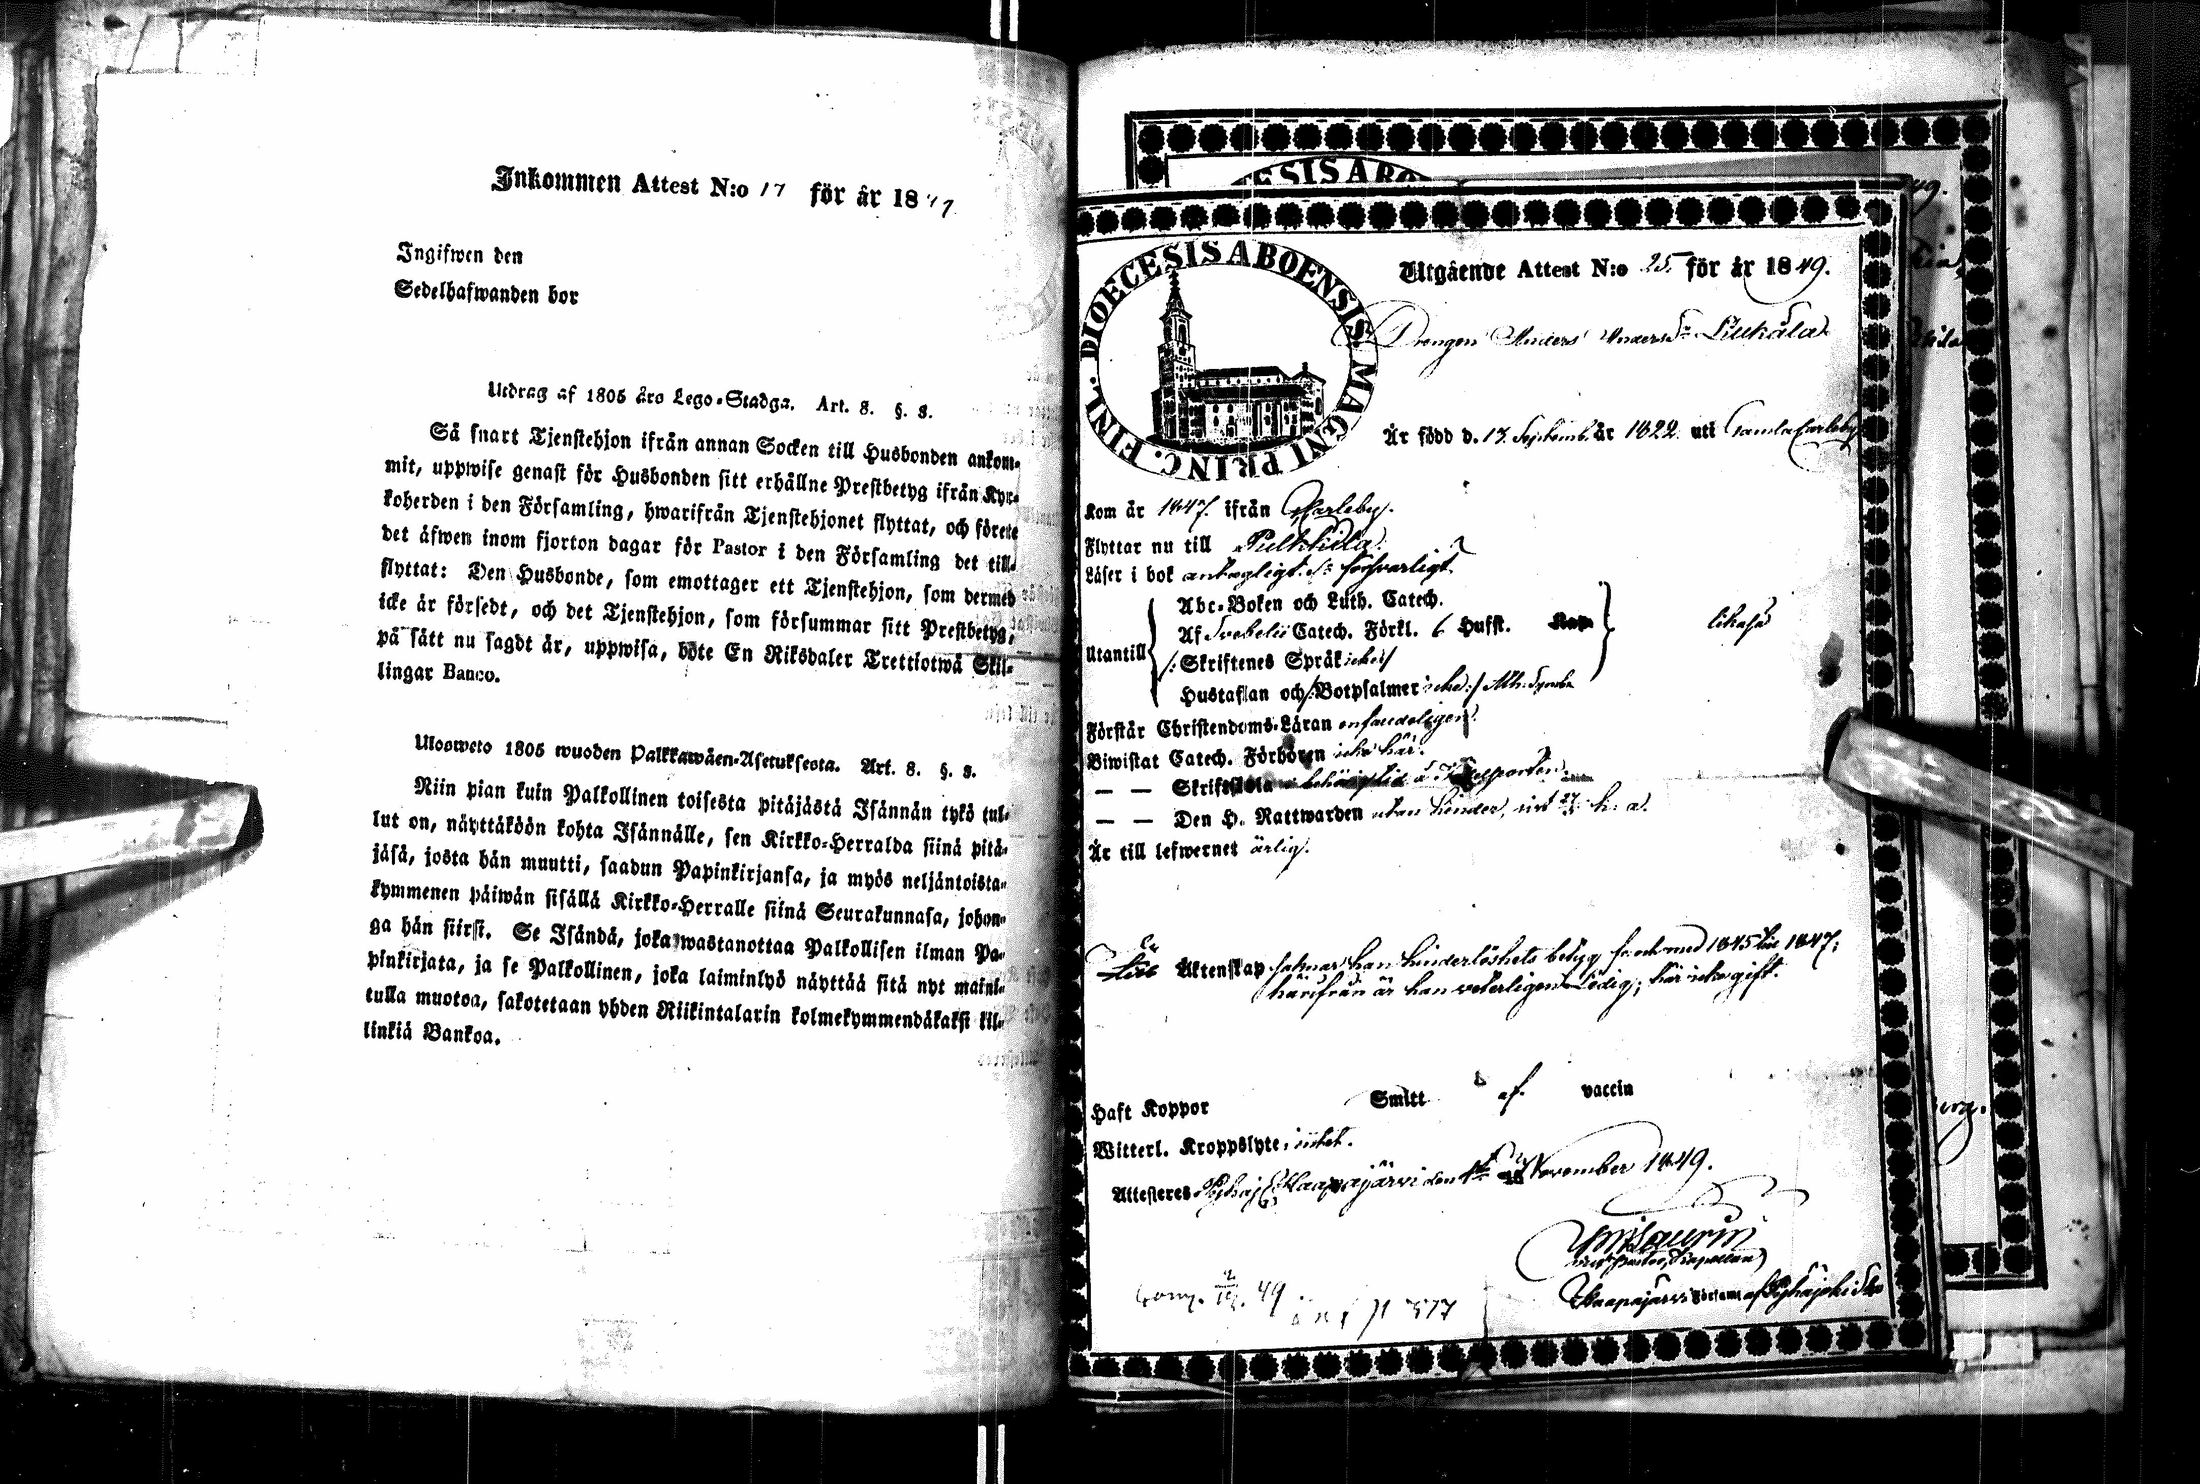 Inkommen Attest N:o 17 för år 18
Ingifwen den
Sedelhafwanden bor
Utdrag af 1805 års Lego-Stadga. Art. 8. §. 8.
Så snart Tjenstehjon ifrån annan Socken till Husbonden ankom-
mit, uppwise genast för Husbonden sitt erhållne Prestbetyg ifrån Kyr-
koherden i den Församling, hwarifrån Tjenstehjonet flyttat, och förete
det äfwen inom fjorton dagar för Pastor i den Församling det till-
flyttat: Den Husbonde, som emottager ett Tjenstehjon, som dermed
icke är försedt, och det Tjenstehjon, som försummar sitt Prestbetyg,
på sätt nu sagdt är, uppwisa, böte En Riksdaler Trettiotwå Skil-
lingar Banco.
Ulosweto 1805 wuoden Palkkawäen-Asetuksesta. Art. 8. §. 8.
Niin pian kuin Palkollinen toisesta pitäjästä Isännän tykö tul-
lut on, näyttäköön kohta Isännälle, sen Kirkko-Herralda siinä pitä-
jäsä, josta hän muutti, saadun Papinkirjansa, ja myös neljäntoista-
kymmenen päiwän sisällä Kirkko-Herralle siinä Seurakunnasa, johon-
ga hän siirsi. Se Isändä, joka wastanottaa Palkollisen ilman Pa-
pinkirjata, ja se Palkollinen, joka laiminlyö näyttää sitä nyt maini-
tulla muotoa, sakotetaan yhden Riikintalarin kolmekymmendäkaksi kil-
linkiä Bankoa.
DIOECESIS ABOENSIS MAGNI PRINC. FINL.
Utgående Attest N:o 25 för år 1849.
Drengen Anders Anders Sn Liukåla
Är född d. 13 Septemb. år 1822 uti Gamla Carleby
Kom år 1847 ifrån Carleby.
Flyttar nu till Pulkkila.
Läser i bok antagligt /: försvarligt
Abc-Boken och Luth. Catech.
Utantill Af Svebelii Catech. Förkl. 6 Hufst. likaså
/: Skriftenes Språk icke /
Hustaflan och /: Botpsalmer icke :/ Ath. Symb.
Förstår Christendoms-Läran enfaldeligen.
Biwistat Catech. Förhören icke här.
— — Skriftskola
— — Den H. Nattwarden utan hinder, sist h. a.
Är till lefwernet ärlig.
Äktenskap saknar han hinderlöshets betyg fr. och med 1845 till 1847;
härifrån är han veterligen Ledig; här icke gift.
Haft Koppor Smitt af vaccin
Witterl. Kroppslyte intet.
Attesteras Pyhäj. & Haapajärvi den November 1849.
Haapajärvi af Pyhäjoki
49